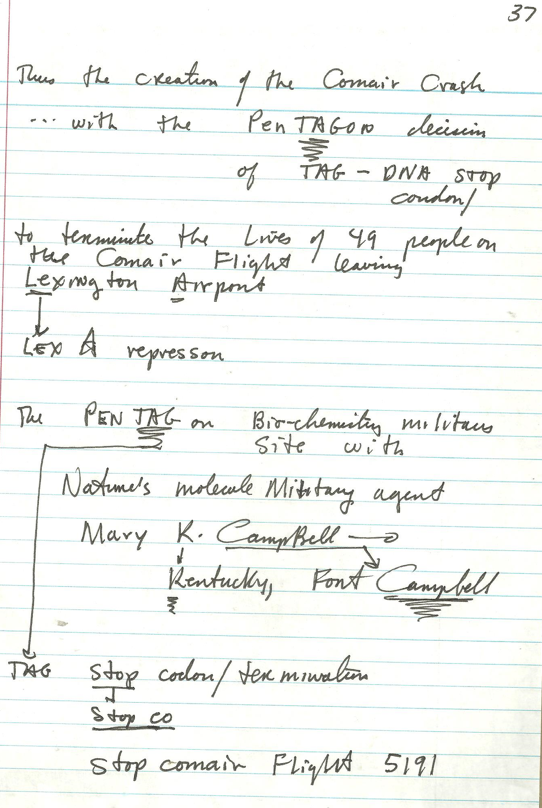 37
Thus the creation of the Comair Crash
... with the PenTAGon decision
of TAG - DNA stop
condon/
to terminate the Lives of 49 people on
the Comair Flight leaving
Lexington Airport
LEX A repressor
The PENTAGon Bio-chemistry military
site with
Nature's molecule Military agent
Mary K. CampBell
Kentucky, Font Campbell
TAG stop codon/termination
Stop co
stop comair Flight 5191